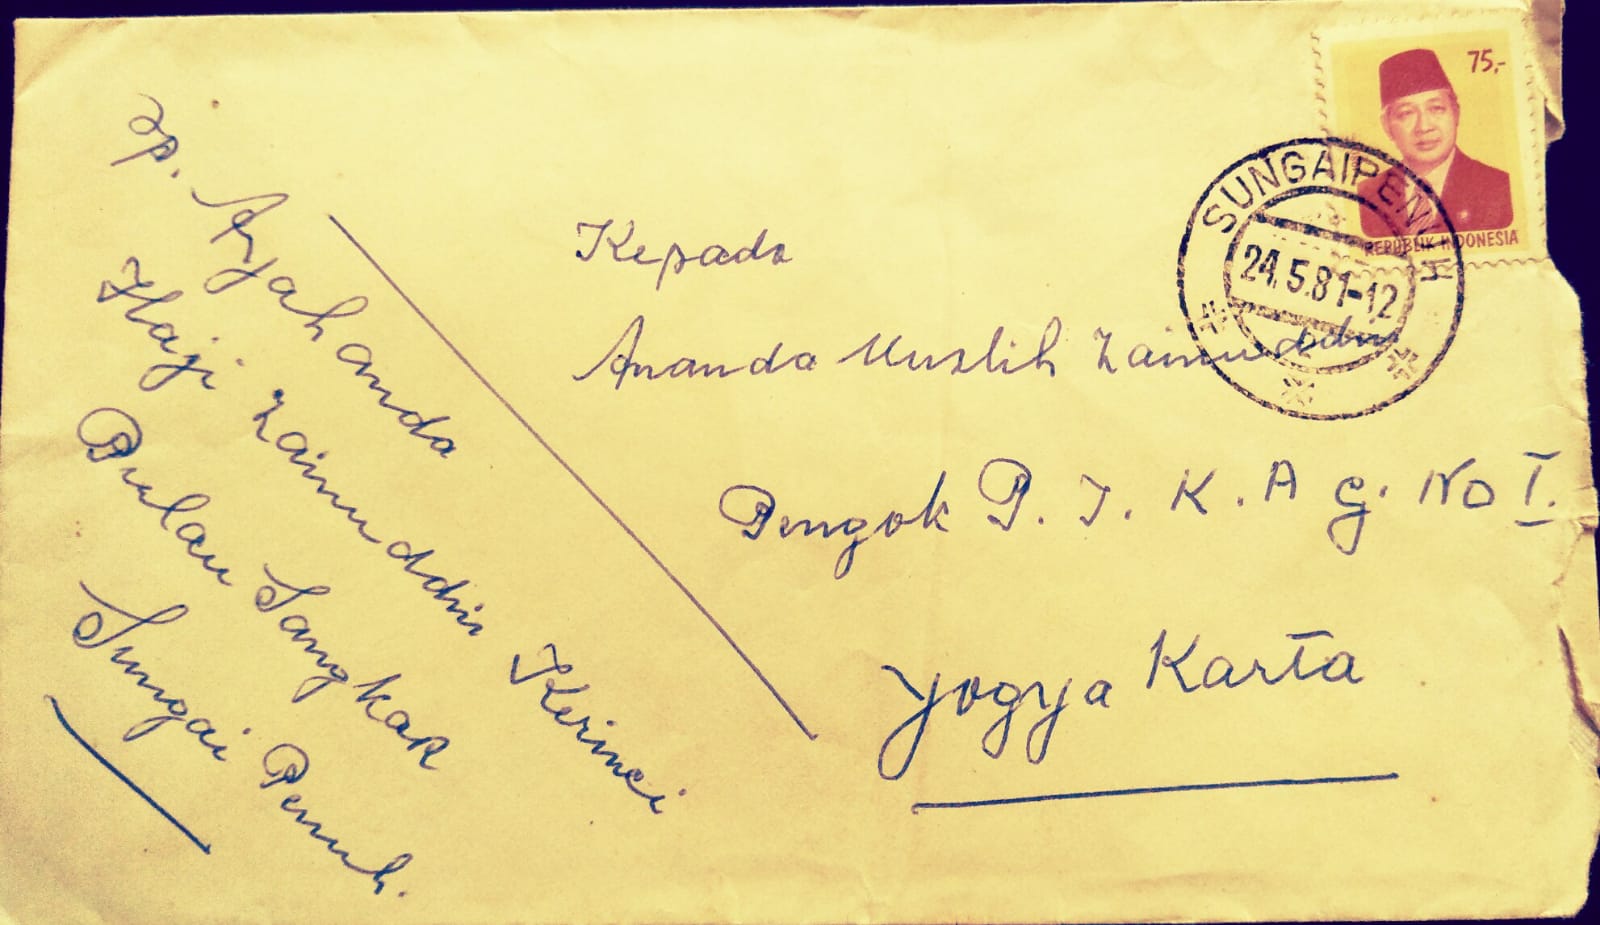 75,-
REPUBLIK INDONESIA
SUNGAIPENUH
24.5.81-12
Kepada
Ananda Muslih Zainuddin
Pengok P. J. K. A G. No I.
Yogya Karta
Sp. Ayahanda
Haji Zainuddin Kerinci
Pulau Sangkar
Sungai Penuh.